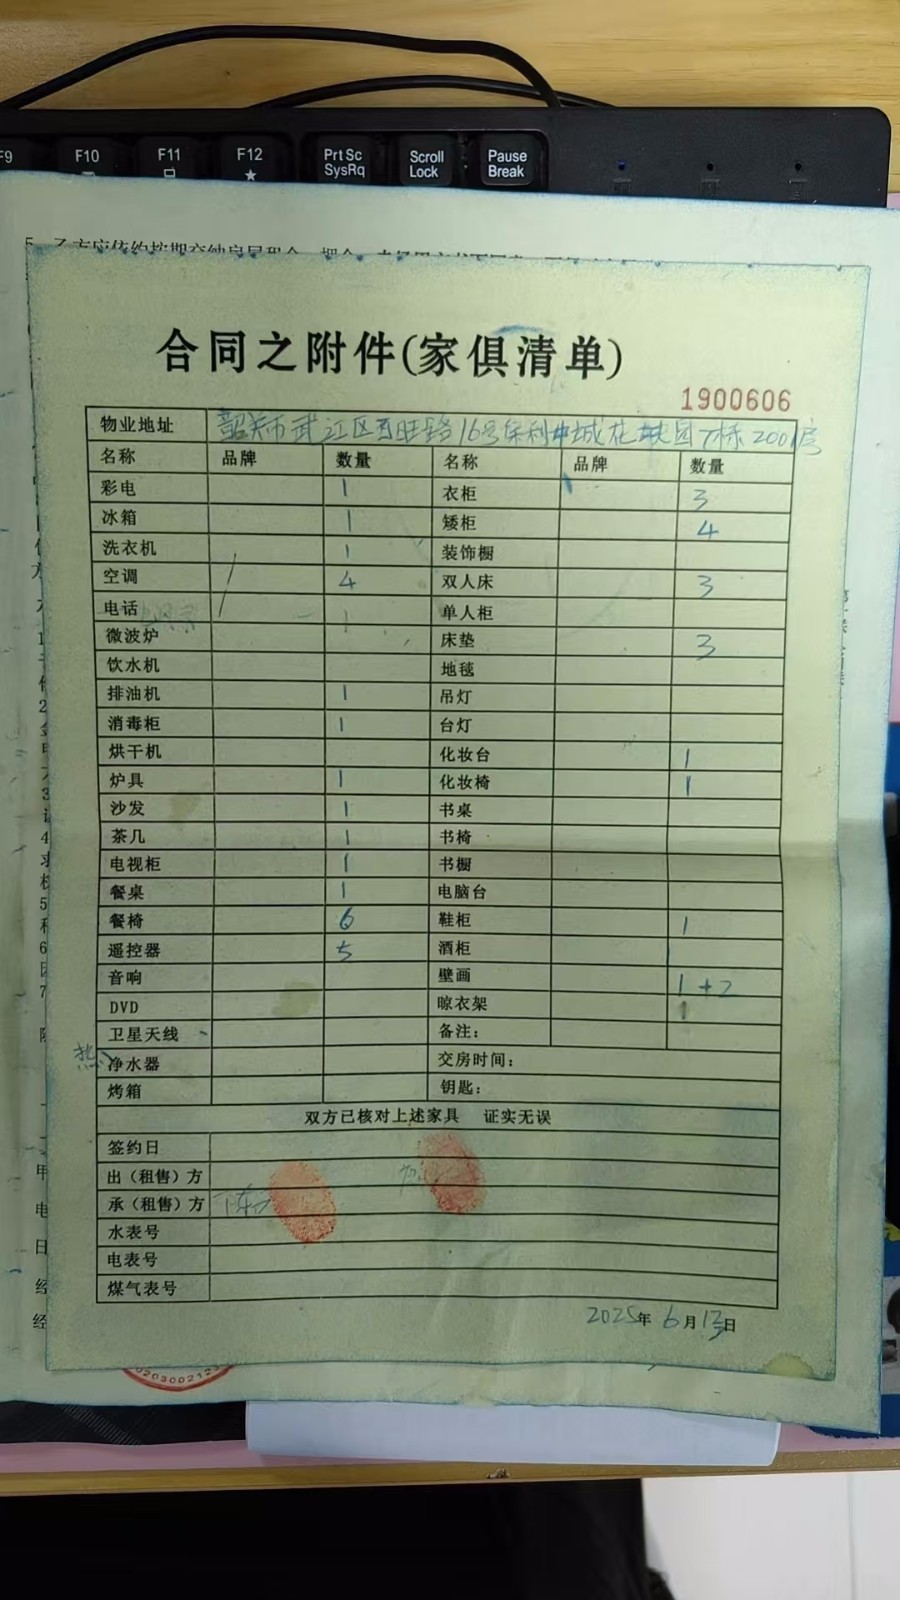 F9 F10 F11 F12 Prt Sc SysRq Scroll Lock Pause Break
合同之附件(家俱清单)
1900606
物业地址 韶关市武江区百旺路16号保利中城花园7栋2001房
名称 品牌 数量 名称 品牌 数量
彩电 1 衣柜 3
冰箱 1 矮柜 4
洗衣机 1 装饰橱
空调 4 双人床 3
电话 1 单人柜
微波炉 床垫 3
饮水机 地毯
排油机 1 吊灯
消毒柜 1 台灯
烘干机 化妆台 1
炉具 1 化妆椅 1
沙发 1 书桌
茶几 1 书椅
电视柜 1 书橱
餐桌 1 电脑台
餐椅 6 鞋柜 1
遥控器 5 酒柜
音响 壁画 1+2
DVD 晾衣架 1
卫星天线 备注：
热 净水器 交房时间：
烤箱 钥匙：
双方已核对上述家具 证实无误
签约日
出（租售）方
承（租售）方
水表号
电表号
煤气表号
2025年6月13日